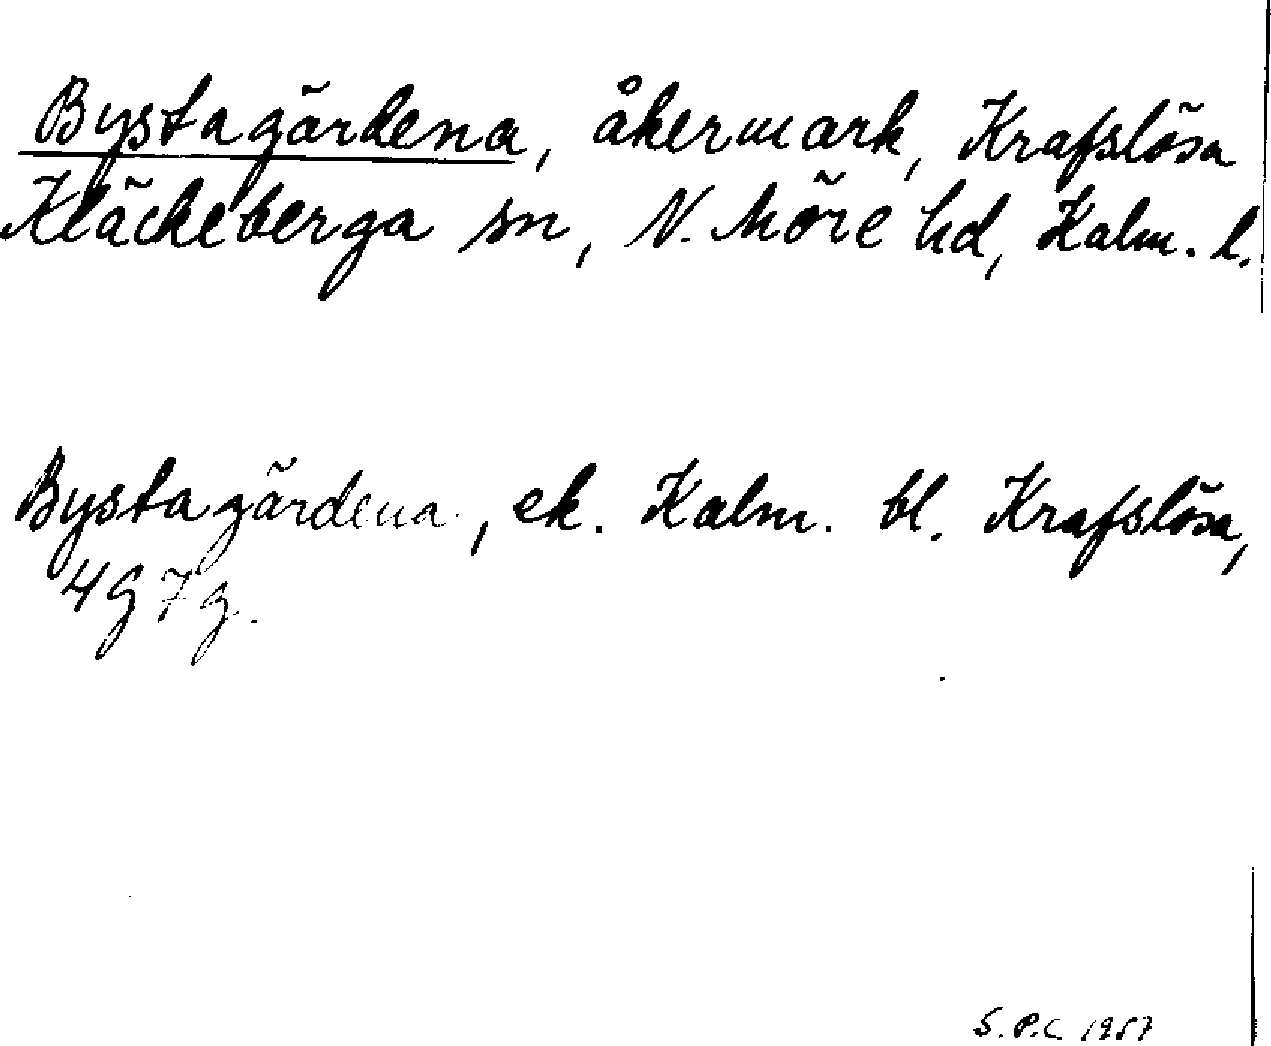 Bystagärdena, åkermark, Krafslösa
Kläckeberga sn, N. Möre hd, Kalm. l.
Bystagärdena, ek. Kalm. bl. Krafslösa,
4g7g.
S.P.C. 1957